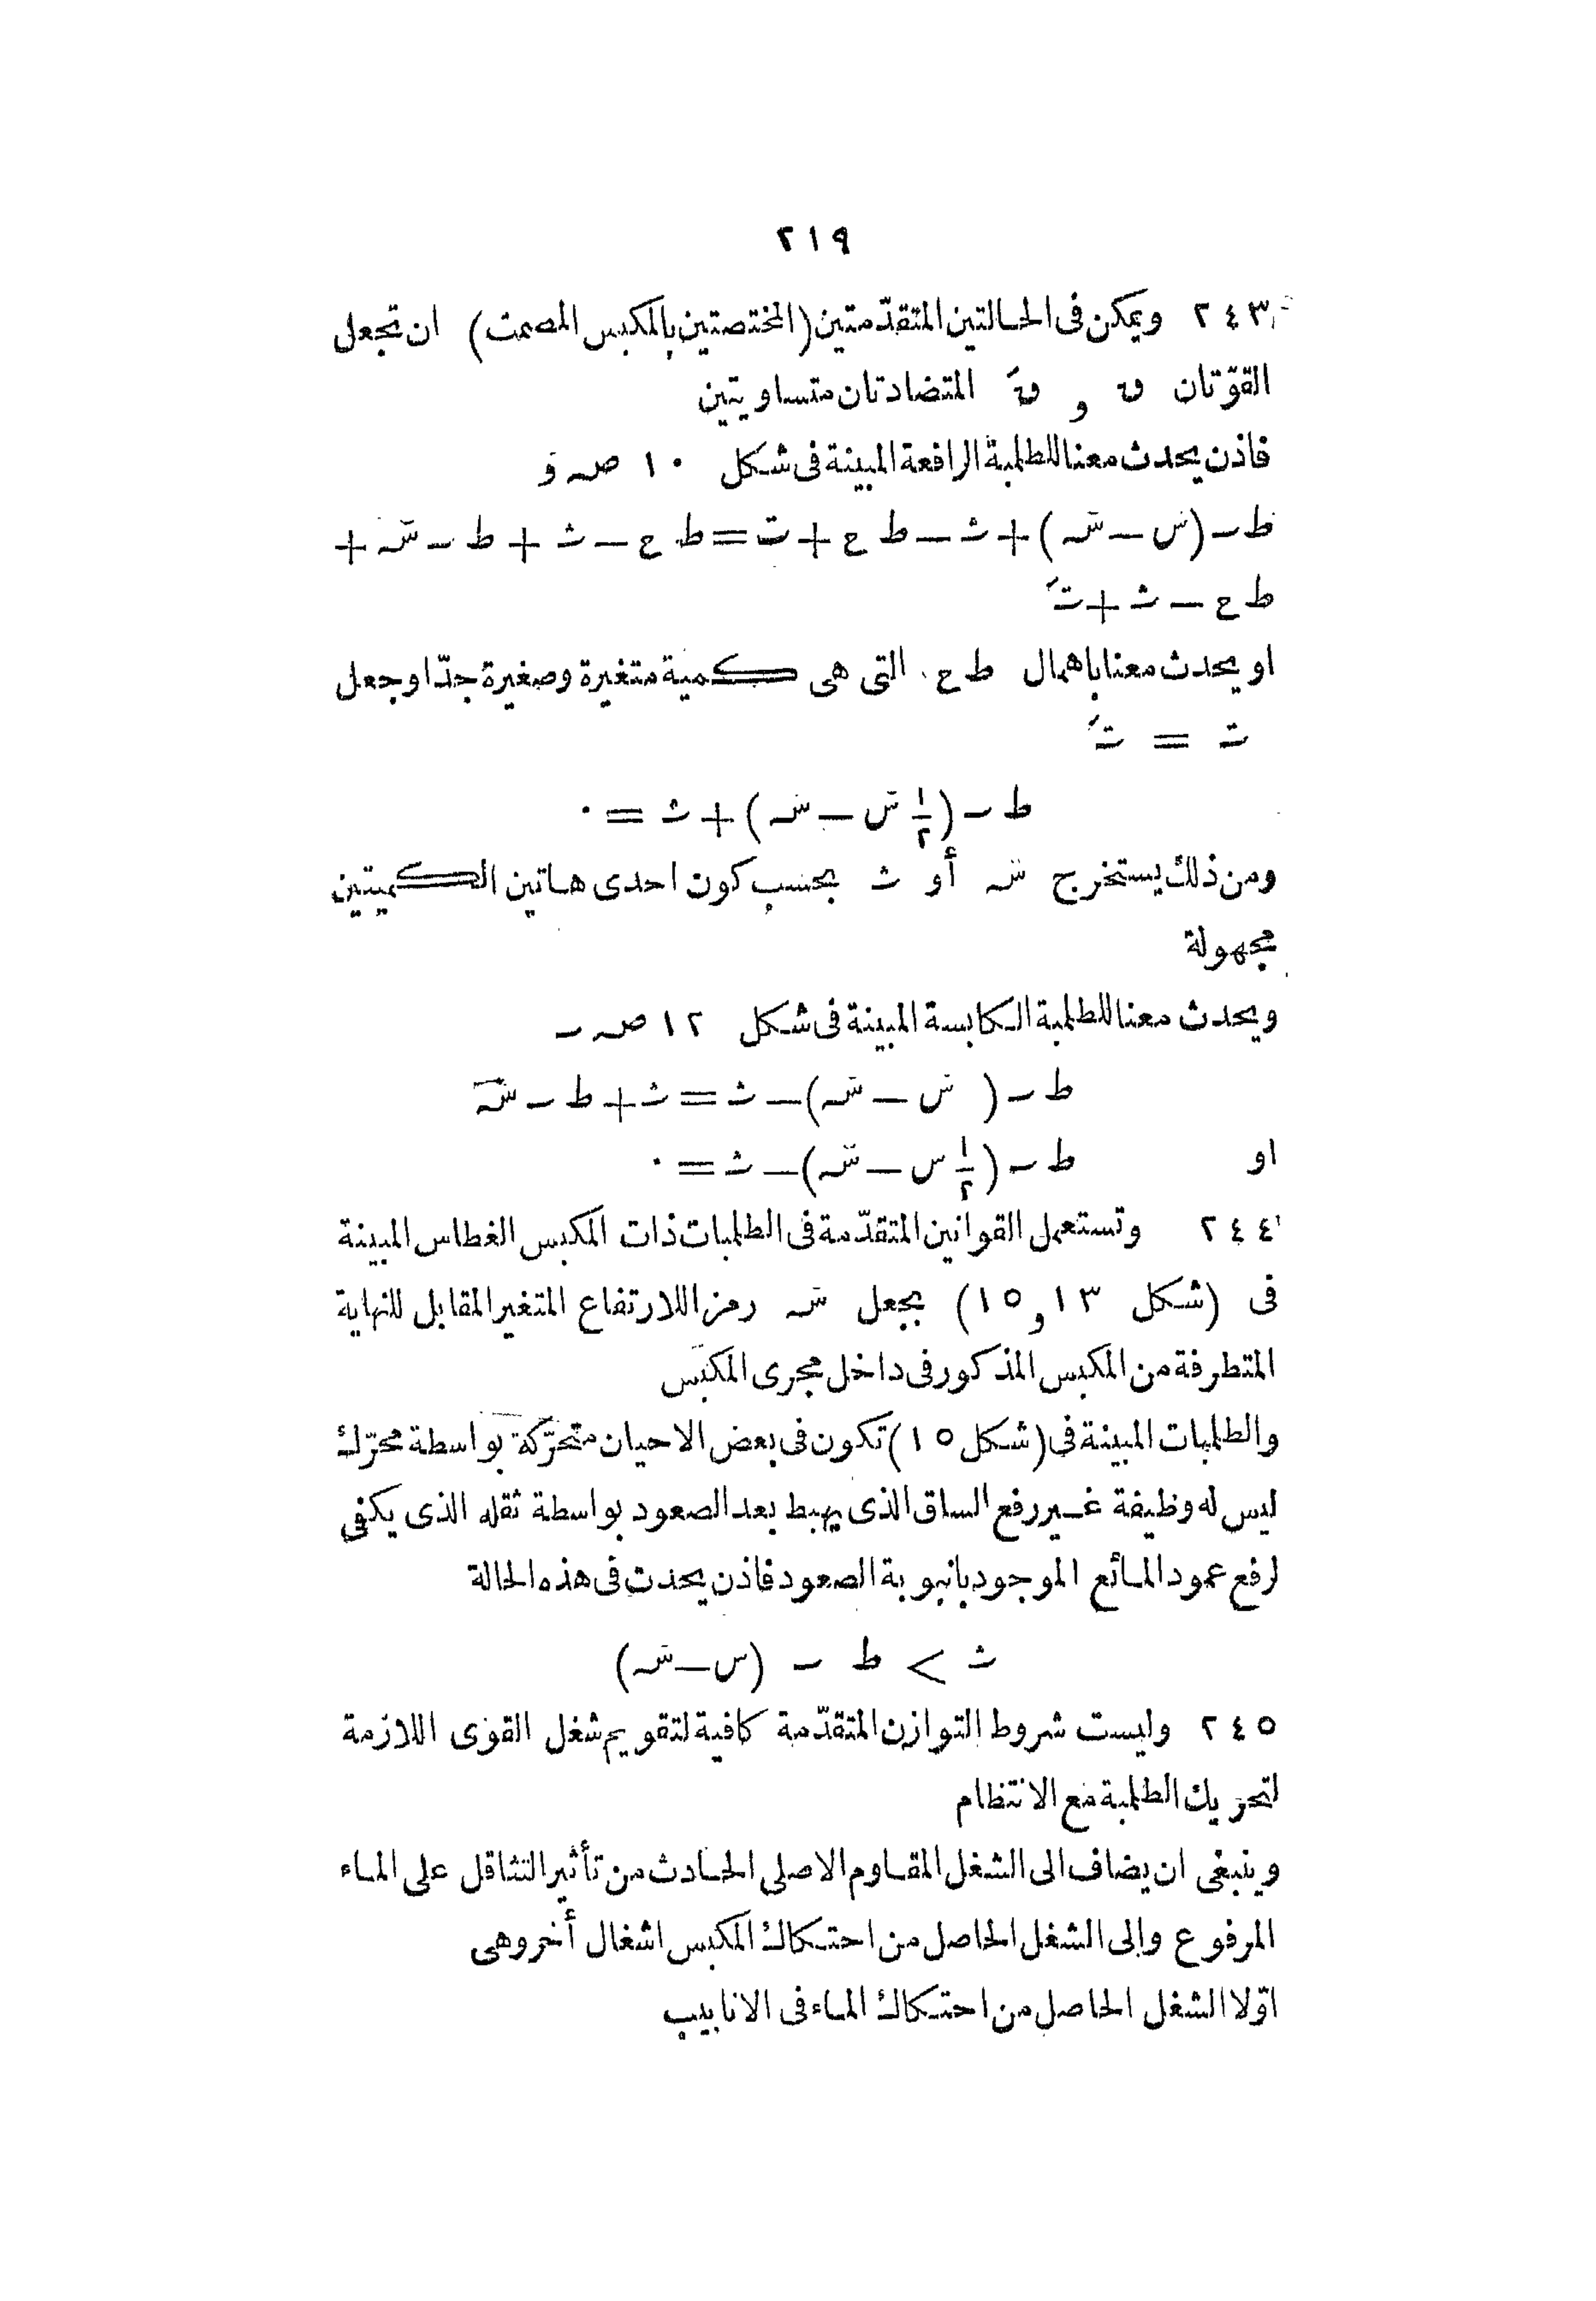 ٢١٩
٢٤٣ ويمكن فى الحالتين المتقدّمتين (المختصتين بالمكبس المصمت) ان تجعل
القوّتان ں و ںَ المتضادتان متساويتين
فاذن يحدث معنا للطلمبة الرافعة المبينة فى شكل ١٠ صـ وَ
ط ـ (س — سَـ) + ث — ط ع + ت = ط ع — ث + ط ـ سَـ +
ط ع — ث + تَ
او يحدث معنا باهمال ط ع التى هى كمية متغيرة وصغيرة جدّا وجعل
ت = تَ
ط ـ (١/٢ س — سـ) + ث = ٠
ومن ذلك يستخرج سَـ أو ث بحسب كون احدى هاتين الكميتين
مجهولة
ويحدث معنا للطلمبة الكابسة المبينة فى شكل ١٢ صـ ـ
ط ـ ( س — سَـ) — ث = ث + ط ـ سَـ
او ط ـ (١/٢ س — سَـ) — ث = ٠
٢٤٤ وتستعمل القوانين المتقدّمة فى الطلمبات ذات المكبس الغطاس المبينة
فى (شكل ١٣ و ١٥) بجعل سَـ رمزا للارتفاع المتغير المقابل للنهاية
المتطرفة من المكبس المذكور فى داخل مجرى المكبس
والطلمبات المبينة فى (شكل ١٥) تكون فى بعض الاحيان متحرّكة بواسطة محرّك
ليس له وظيفة غير رفع الساق الذى يهبط بعد الصعود بواسطة ثقله الذى يكفى
لرفع عمود المائع الموجود بانبوبة الصعود فاذن يحدث فى هذه الحالة
ث > ط ـ (س — سَـ)
٢٤٥ وليست شروط التوازن المتقدّمة كافية لتقويم شغل القوى اللازمة
لتحريك الطلمبة مع الانتظام
وينبغى ان يضاف الى الشغل المقاوم الاصلى الحادث من تأثير التثاقل على الماء
المرفوع والى الشغل الحاصل من احتكاك المكبس اشغال أخر وهى
اوّلا الشغل الحاصل من احتكاك الماء فى الانابيب